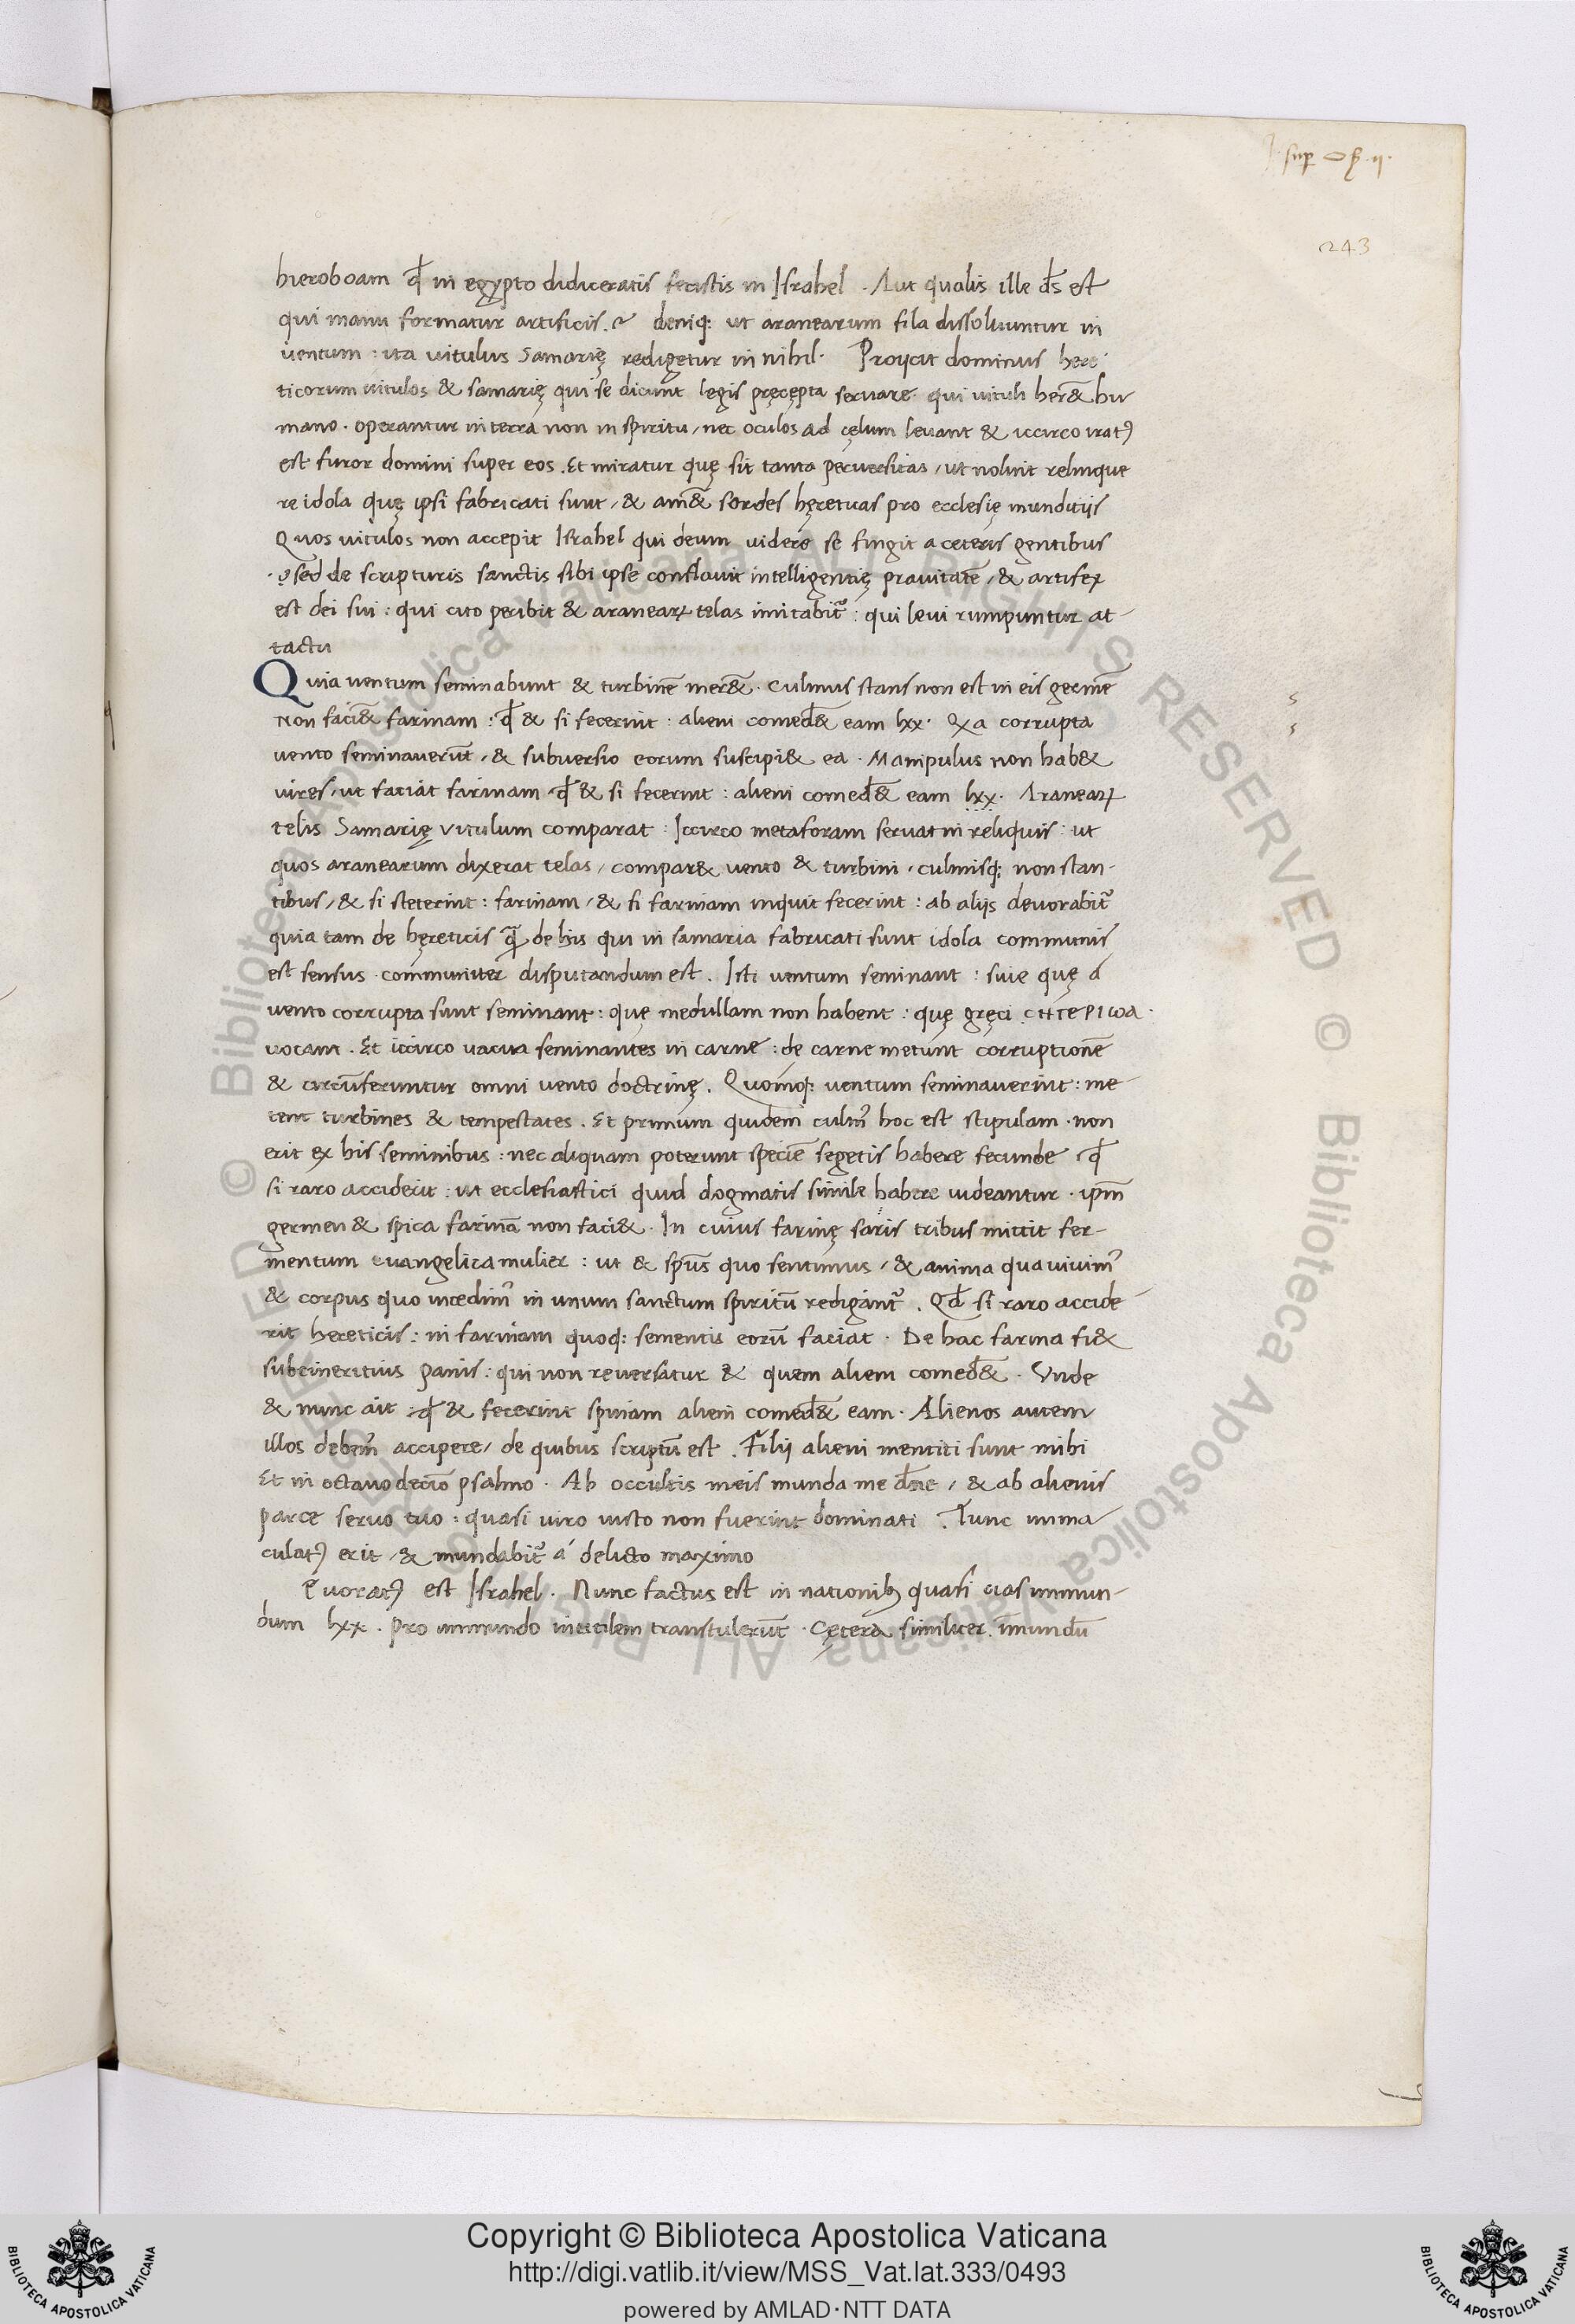 sup oſ. ij.
243
hieroboam qđ in egypto didiceratis fecistis in Israhel . Aut qualis ille ds̄ est
qui manu formatur artificis .? deniq; ut aranearum fila dissoluuntur in
uentum : ita uitulus Samarię redigetur in nihil . Proijcit dominus here
ticorum uitulos & samarię qui se dicunt legis pręcępta seruare . qui uituli her&̄ hu
mano . operantur in terra non in spiritu / nec oculos ad cęlum leuant & iccirco iratꝰ
est furor domini super eos . Et miratur quę sit tanta peruersitas / ut noluit relinque
re idola quę ipsi fabricati sunt / & am&̄ sordes hęreticas pro ecclesię munditijs
Quos uitulos non accepit Israhel qui deum uidere se fingit a ceteris gentibus
sed de scripturis sanctis sibi ipse conflauit intelligentię prauitatē / & artifex
est dei sui : qui cito peribit & aranearꝝ telas imitabit᷑ : qui leui rumpuntur at-
tactu
Quia uentum seminabunt & turbinē mer&̄ . culmus stans non est in eis germē
Non faci&̄ farinam : qđ & si fecerint : alieni comed&̄ eam lxx . Qa corrupta
uento seminauerūt / & subuersio eorum suscipi& ea . Manipulus non hab&
uires / ut faciat farinam qđ & si fecerint : alieni comed&̄ eam lxx . Aranearꝝ
telis Samarię vitulum comparat : Iccirco metaforam seruat in reliquis : ut
quos aranearum dixerat telas / compar& uento & turbini / culmisq; non stan-
tibus / & si steterint : farinam / & si farinam inquit fecerint : ab alijs deuorabit᷑
quia tam de hęreticis q̄ de his qui in samaria fabricati sunt idola communis
est sensus . communiter disputandum est . Isti uentum seminant : siue quę á
uento corrupta sunt seminant : quę medullam non habent : quę gręci CHTEPIWA .
uocant . Et iccirco uacua seminantes in carne : de carne metunt corruptionē
& circūferuntur omni uento doctrinę . Quomoq; uentum seminauerint : me-
tent turbines & tempestates . Et primum quidem culmꝰ hoc est stipulam . non
erit ex his seminibus : nec aliquam poterunt speciē segetis habere fecunde qđ
si raro acciderit : ut ecclesiastici quid dogmatis simile habere uideantur . ipm̄
germen & spica farinā non faci& . In cuius farinę saris tribus mittit fer-
mentum euangelica mulier : ut & sp̄us quo sentimus / & anima qua uiuimꝰ
& corpus quo incedimꝰ in unum sanctum spiritū redigant᷑ . Qđ si raro accide
rit hereticis : in farinam quoq; sementis eorū faciat . De hac farina fi&
subcineritius panis : qui non reuersatur & quem alieni comed&̄ . Vnde
& nunc ait : qđ & fecerint spiniam alieni comed&̄ eam . Alienos autem
illos debemꝰ accipere / de quibus scriptū est . Filij alieni mentiti sunt mihi
Et in octauodecīo psalmo . Ab occultis meis munda me dn̄e / & ab alienis
parce seruo tuo : quasi uiro iusto non fuerint dominati . Tunc imma
culatꝰ erit / & mundabit᷑ á delicto maximo
Euoratꝰ est Israhel . Nunc factus est in nationibꝫ quasi uas immun-
dum lxx . pro immundo inutilem transtulerūt . Cętera similiter . īmundū
© Biblioteca Apostolica Vaticana ALL RIGHTS RESERVED © Biblioteca Apostolica Vaticana ALL RIGHTS RESERVED
Copyright © Biblioteca Apostolica Vaticana
http://digi.vatlib.it/view/MSS_Vat.lat.333/0493
powered by AMLAD·NTT DATA
BIBLIOTECA APOSTOLICA VATICANA
BIBLIOTECA APOSTOLICA VATICANA